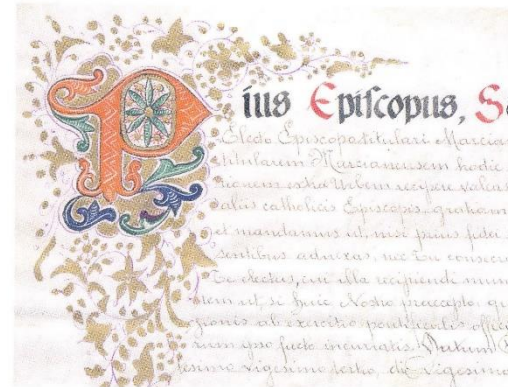 Pius Episcopus, S
Electo Episcopo titulari Marcia
titularem Marcianensem hodie
extra Urbem valeas
aliis catholicis Episcopis, gratiam
et mandamus ut, nisi prius fidei
adnixas, nec Tu consecra
Te electus, cui illa recipiendi mun
autem ut, si huic Nostro praecepto, qu
gionis ab exercitio pontificalis offici
rum ipso facto incurratis. Datum R
esimo vigesimo tertio, die vigesimo